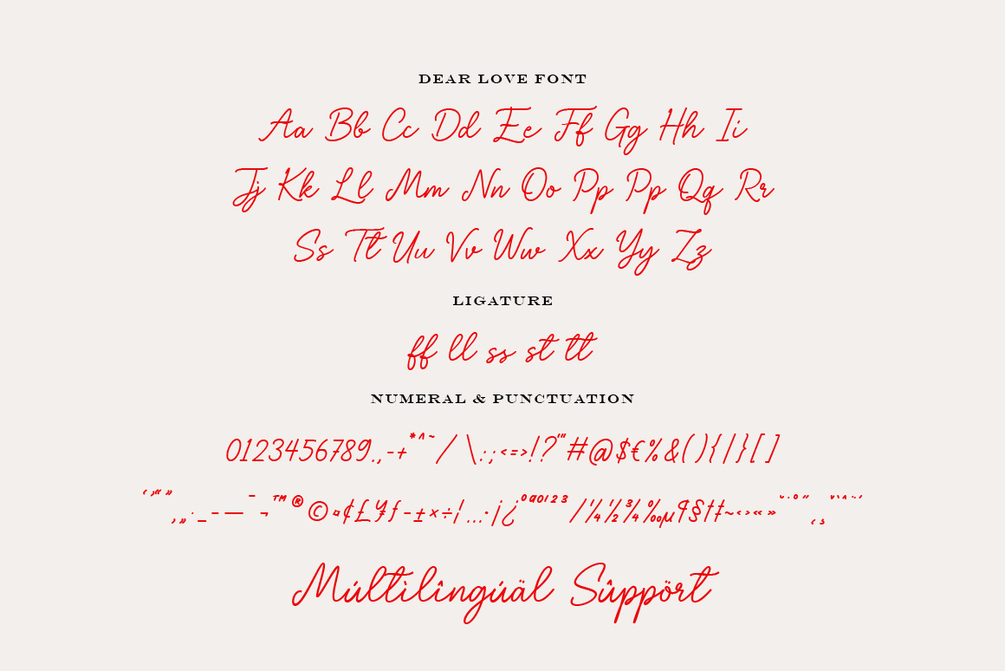 DEAR LOVE FONT
Aa Bb Cc Dd Ee Ff Gg Hh Ii
Jj Kk Ll Mm Nn Oo Pp Pp Qq Rr
Ss Tt Uu Vv Ww Xx Yy Zz
LIGATURE
ff ll ss st tt
NUMERAL & PUNCTUATION
0123456789.,-+*^~/\:;<=>!?'"#@$€%&(){|}[]
‘’“”‚„·_-—¯¬™®©¤¢£¥ƒ-±×÷¦…·¡¿ºª0123/¼½¾‰µ¶§†‡~‹›«»
Múltilîngúäl Sûppört